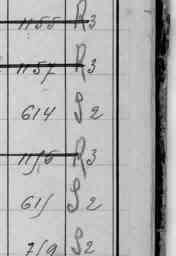 1155 R3
1157 R3
614 S2
1156 R3
615 S2
719 S2